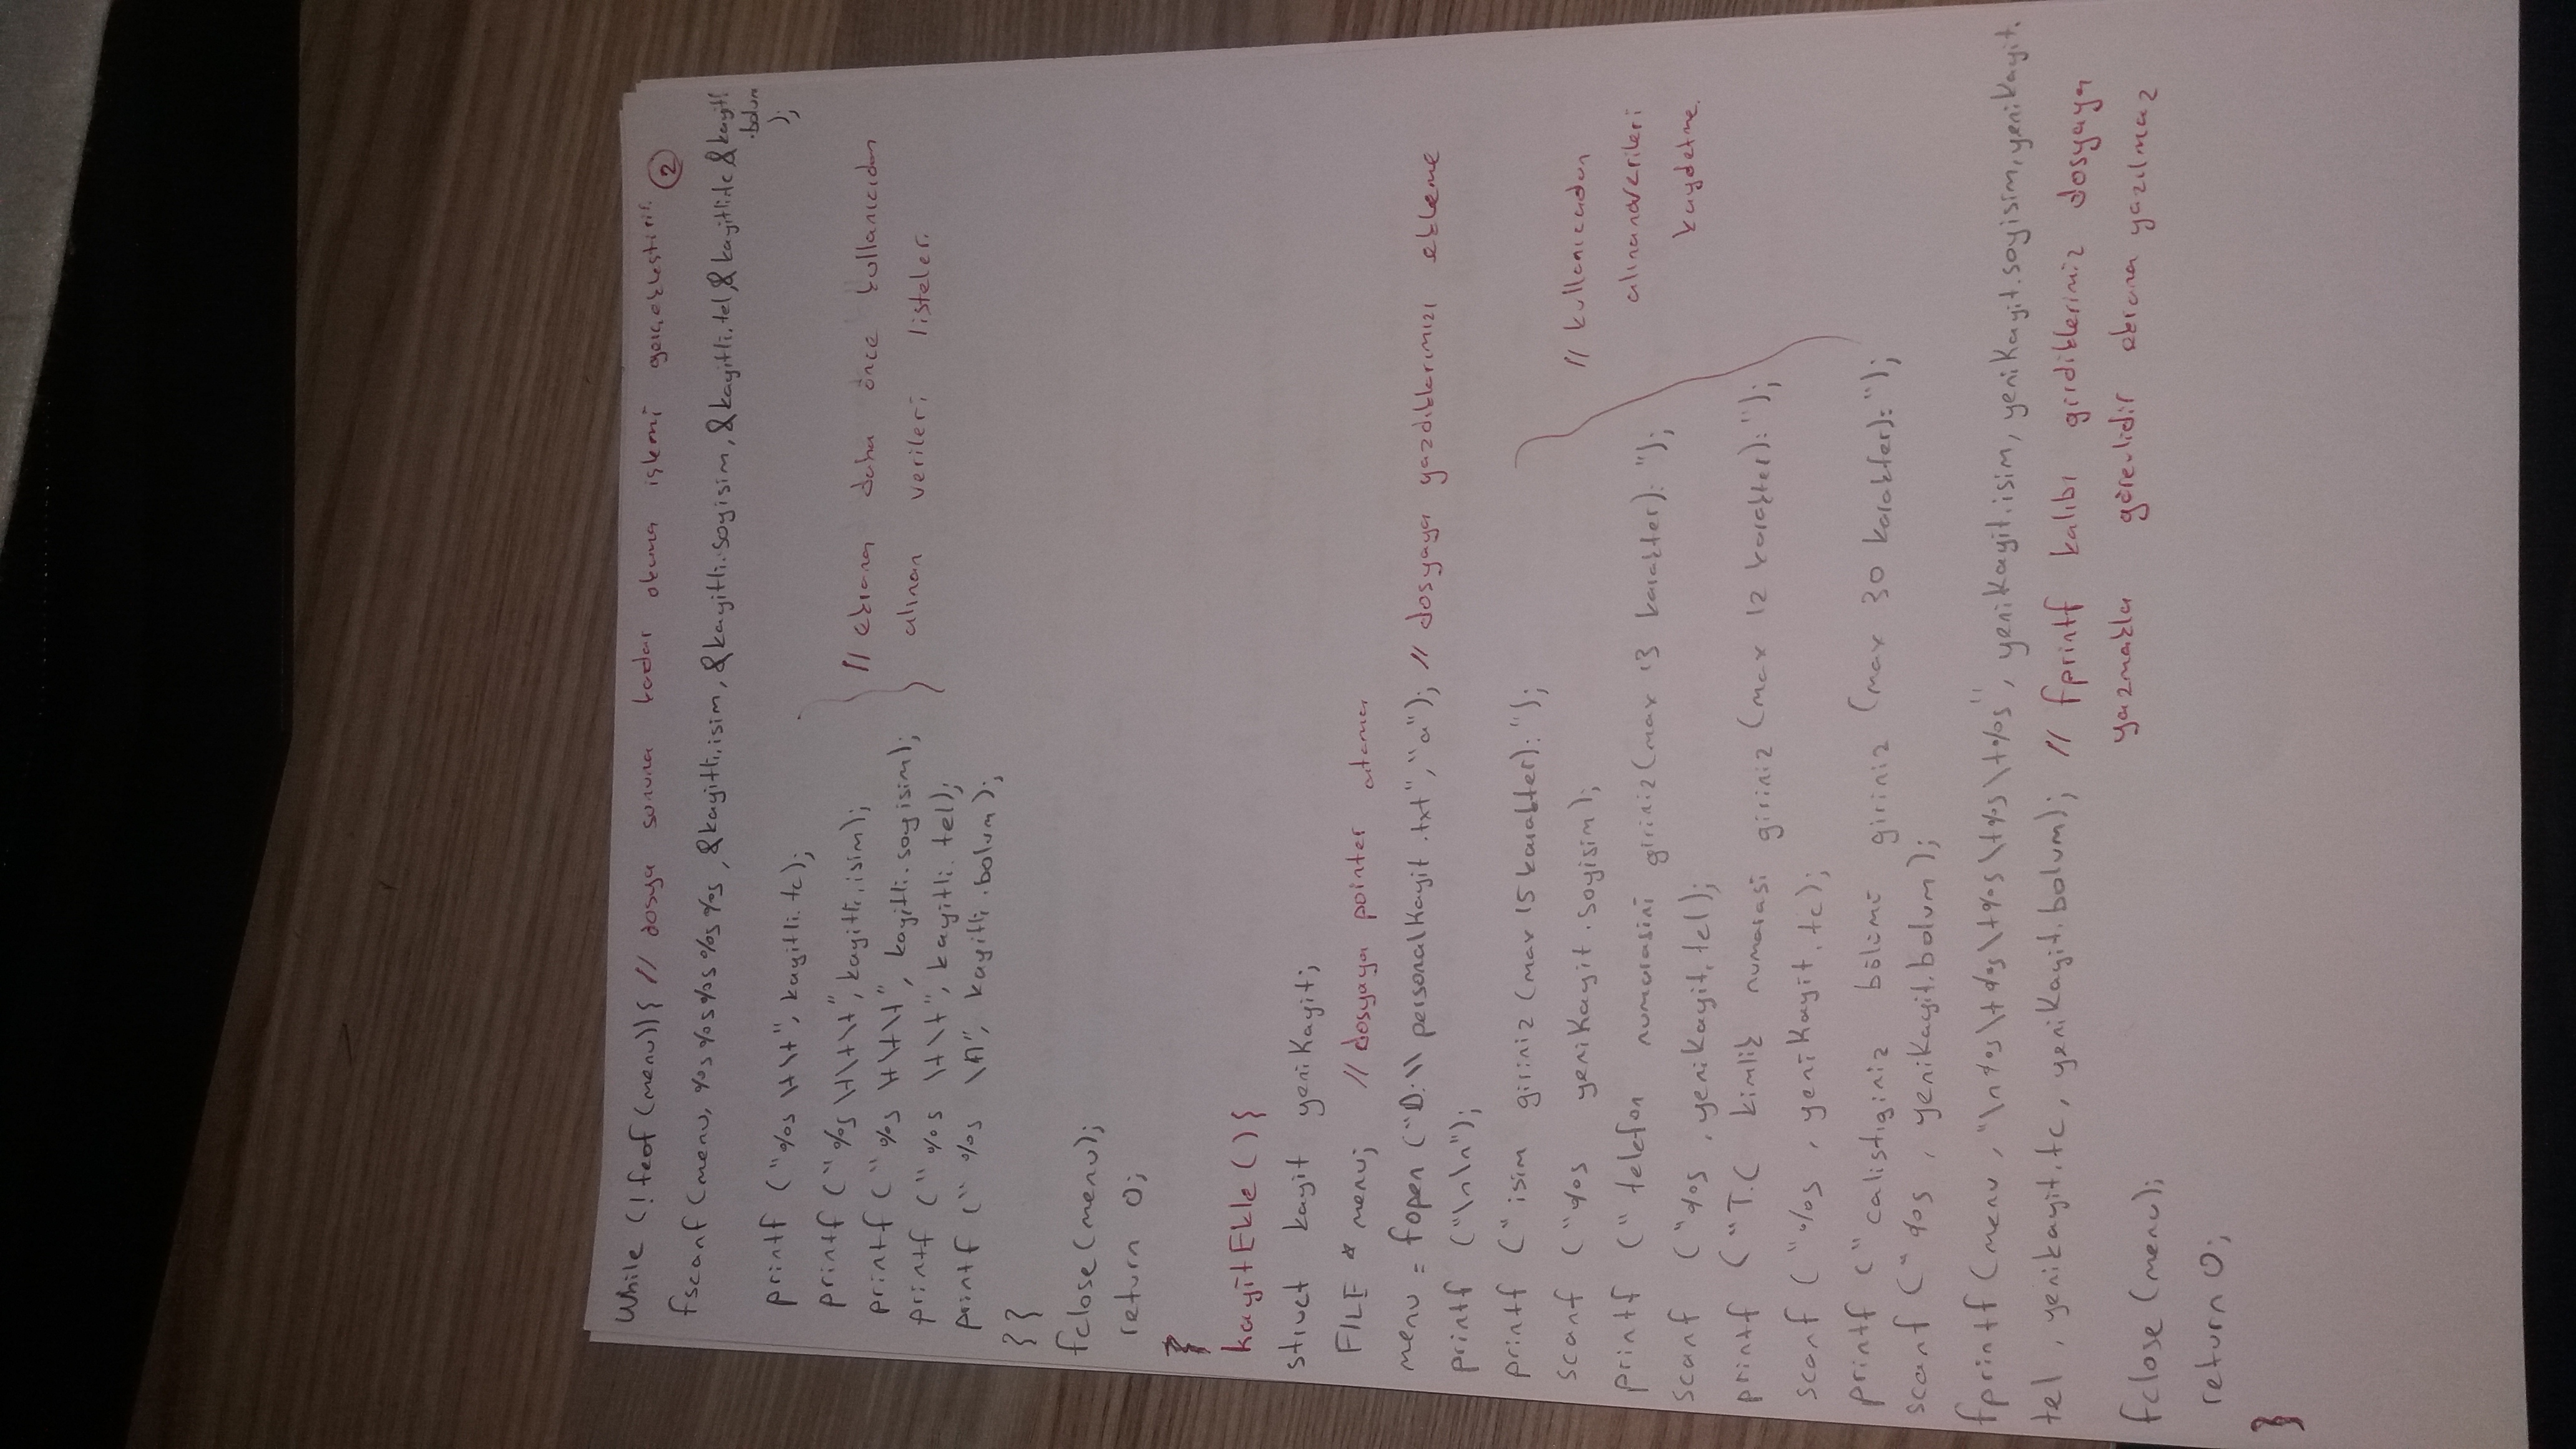 While (! feof (menu)) { // dosya sonuna kadar okuma işlemi gerçekleştirir. 2
fscanf (menu, %s %s %s %s %s , &kayitli.isim, &kayitli.soyisim, &kayitli.tel, & kayitli.tc & kayitli
.bolum
);
printf ("%s \t\t", kayitli.tc);
printf ("%s \t\t\t", kayitli.isim);
printf (" %s \t\t\t", kayitli.soyisim);
printf (" %s \t\t", kayitli.tel);
printf (" %s \n", kayitli.bolum);
// ekrana daha önce kullanıcıdan
alınan verileri listeler.
} }
fclose (menu);
return 0;
}
kayitEkle () {
struct kayit yeniKayit;
FILE * menu; // dosyaya pointer atama
menu = fopen ("D:\\ personalKayit.txt", "a"); // dosyaya yazdıklarımızı ekleme
printf ("\n\n");
printf (" isim giriniz (max 15 karakter): ");
scanf ("%s yeniKayit.soyisim);
printf (" telefon numarasini giriniz (max 13 karakter): ");
scanf ("%s , yeniKayit.tel);
printf ("T.C kimlik numarasi giriniz (max 12 karakter): ");
scanf ("%s , yeniKayit.tc);
printf (" calistiginiz bölümü giriniz (max 30 karakter): ");
scanf (" %s , yeniKayit.bolum);
// kullanıcıdan
alınanverileri
kaydetme.
fprintf (menu , "\n%s\t%s\t%s\t%s\t%s", yeniKayit.isim, yeniKayit.soyisim, yeniKayit.
tel , yenikayit.tc , yeniKayit.bolum); // fprintf kalıbı girdiklerimiz dosyaya
yazmakla görevlidir ekrana yazılmaz
fclose (menu);
return 0;
}